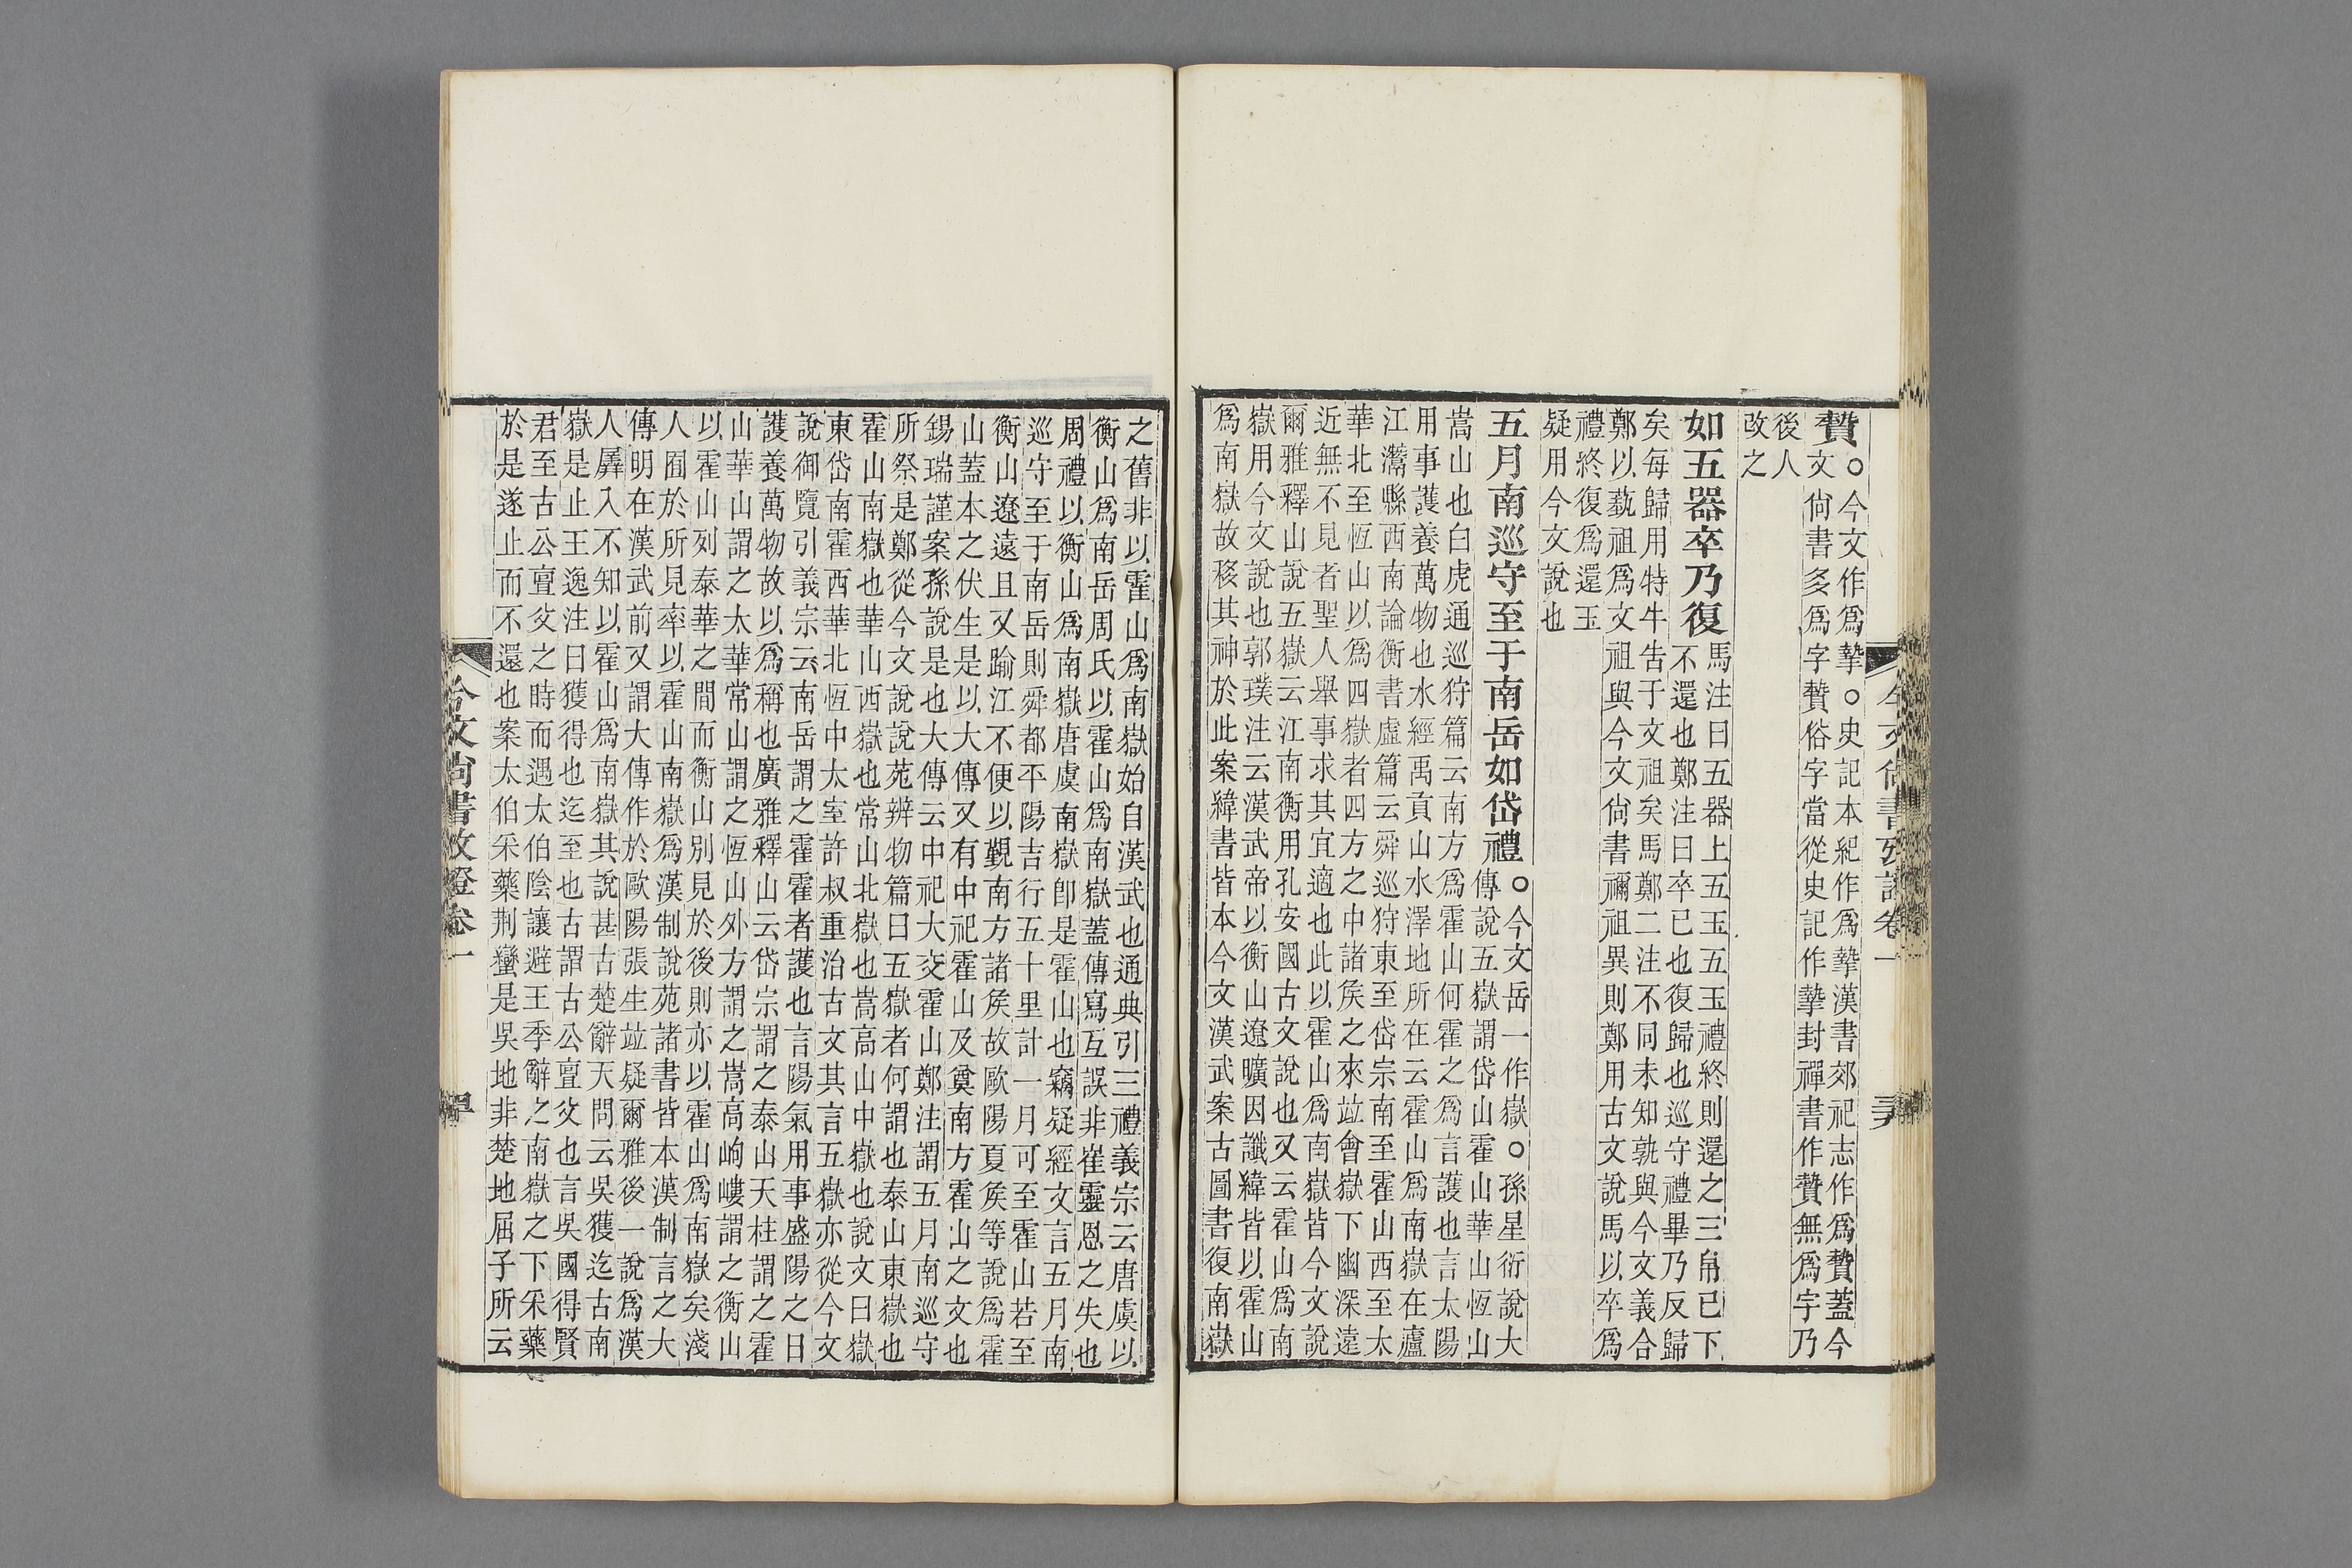 贄○今文作爲摯○史記本紀作爲摯漢書郊祀志作爲贄蓋今
文尚書多爲字贄俗字當從史記作摯封禪書作贄無爲字乃
後人
改之
如五器卒乃復馬注曰五器上五玉五玉禮終則還之三帛已下
不還也鄭注曰卒已也復歸也巡守禮畢乃反歸
矣每歸用特牛告于文祖矣馬鄭二注不同未知孰與今文義合
鄭以蓺祖爲文祖與今文尚書禰祖異則鄭用古文說馬以卒爲
禮終復爲還玉
疑用今文說也
五月南巡守至于南岳如岱禮○今文岳一作嶽○孫星衍說大
傳說五嶽謂岱山霍山華山恆山
嵩山也白虎通巡狩篇云南方爲霍山何霍之爲言護也言太陽
用事護養萬物也水經禹貢山水澤地所在云霍山爲南嶽在廬
江灊縣西南論衡書虛篇云舜巡狩東至岱宗南至霍山西至太
華北至恆山以爲四嶽者四方之中諸矦之來竝會嶽下幽深遠
近無不見者聖人舉事求其宜適也此以霍山爲南嶽皆今文說
爾雅釋山說五嶽云江南衡用孔安國古文說也又云霍山爲南
嶽用今文說也郭璞注云漢武帝以衡山遼曠因讖緯皆以霍山
爲南嶽故移其神於此案緯書皆本今文漢武案古圖書復南嶽
之舊非以霍山爲南嶽始自漢武也通典引三禮義宗云唐虞以
衡山爲南岳周氏以霍山爲南嶽蓋傳寫互誤非崔靈恩之失也
周禮以衡山爲南嶽唐虞南嶽卽是霍山也竊疑經文言五月南
巡守至于南岳則舜都平陽吉行五十里計一月可至霍山若至
衡山遼遠且又踰江不便以覲南方諸矦故歐陽夏矦等說爲霍
山蓋本之伏生是以大傳又有中祀霍山及奠南方霍山之文也
錫瑞謹案孫說是也大傳云中祀大交霍山鄭注謂五月南巡守
所祭是鄭從今文說說苑辨物篇曰五嶽者何謂也泰山東嶽也
霍山南嶽也華山西嶽也常山北嶽也嵩高山中嶽也說文曰嶽
東岱南霍西華北恆中大室許叔重治古文其言五嶽亦從今文
說御覽引義宗云南岳謂之霍霍者護也言陽氣用事盛陽之日
護養萬物故以爲稱也廣雅釋山云岱宗謂之泰山天柱謂之霍
山華山謂之太華常山謂之恆山外方謂之嵩高岣嶁謂之衡山
以霍山列泰華之間而衡山別見於後則亦以霍山爲南嶽矣淺
人囿於所見率以霍山南嶽爲漢制說苑諸書皆本漢制言之大
傳明在漢武前又謂大傳作於歐陽張生竝疑爾雅後一說爲漢
人羼入不知以霍山爲南嶽其說甚古楚辭天問云吳獲迄古南
嶽是止王逸注曰獲得也迄至也古謂古公亶父也言吳國得賢
君至古公亶父之時而遇太伯陰讓避王季辭之南嶽之下采藥
於是遂止而不還也案太伯采藥荆蠻是吳地非楚地屈子所云
今文尚書攷證卷一